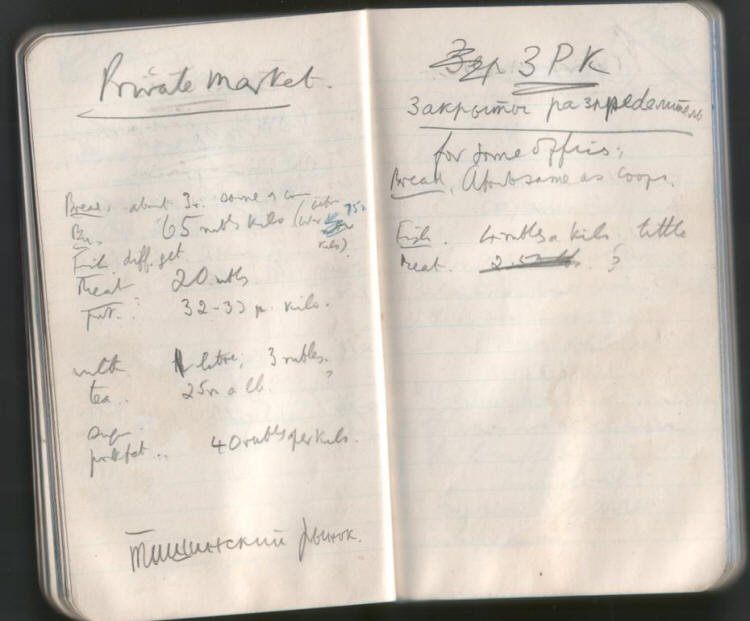 Private market.
Bread, about 3r. some
65 roubles kilo (later 75r
kilo)
Fish diff. get
Meat 20 rubls
Fat. : 32-33 r. kilo.
milk 1 litre, 3 rubles.
tea.. 25r a lb. ?
Sugar
porkfat... 40 rubls per kilo.
Тишинский рынок.
ЗРК
Закрытый распределитель
for some offices;
Bread, About same as coops.
Fish. 4 rubles a kilo little
Meat. ?